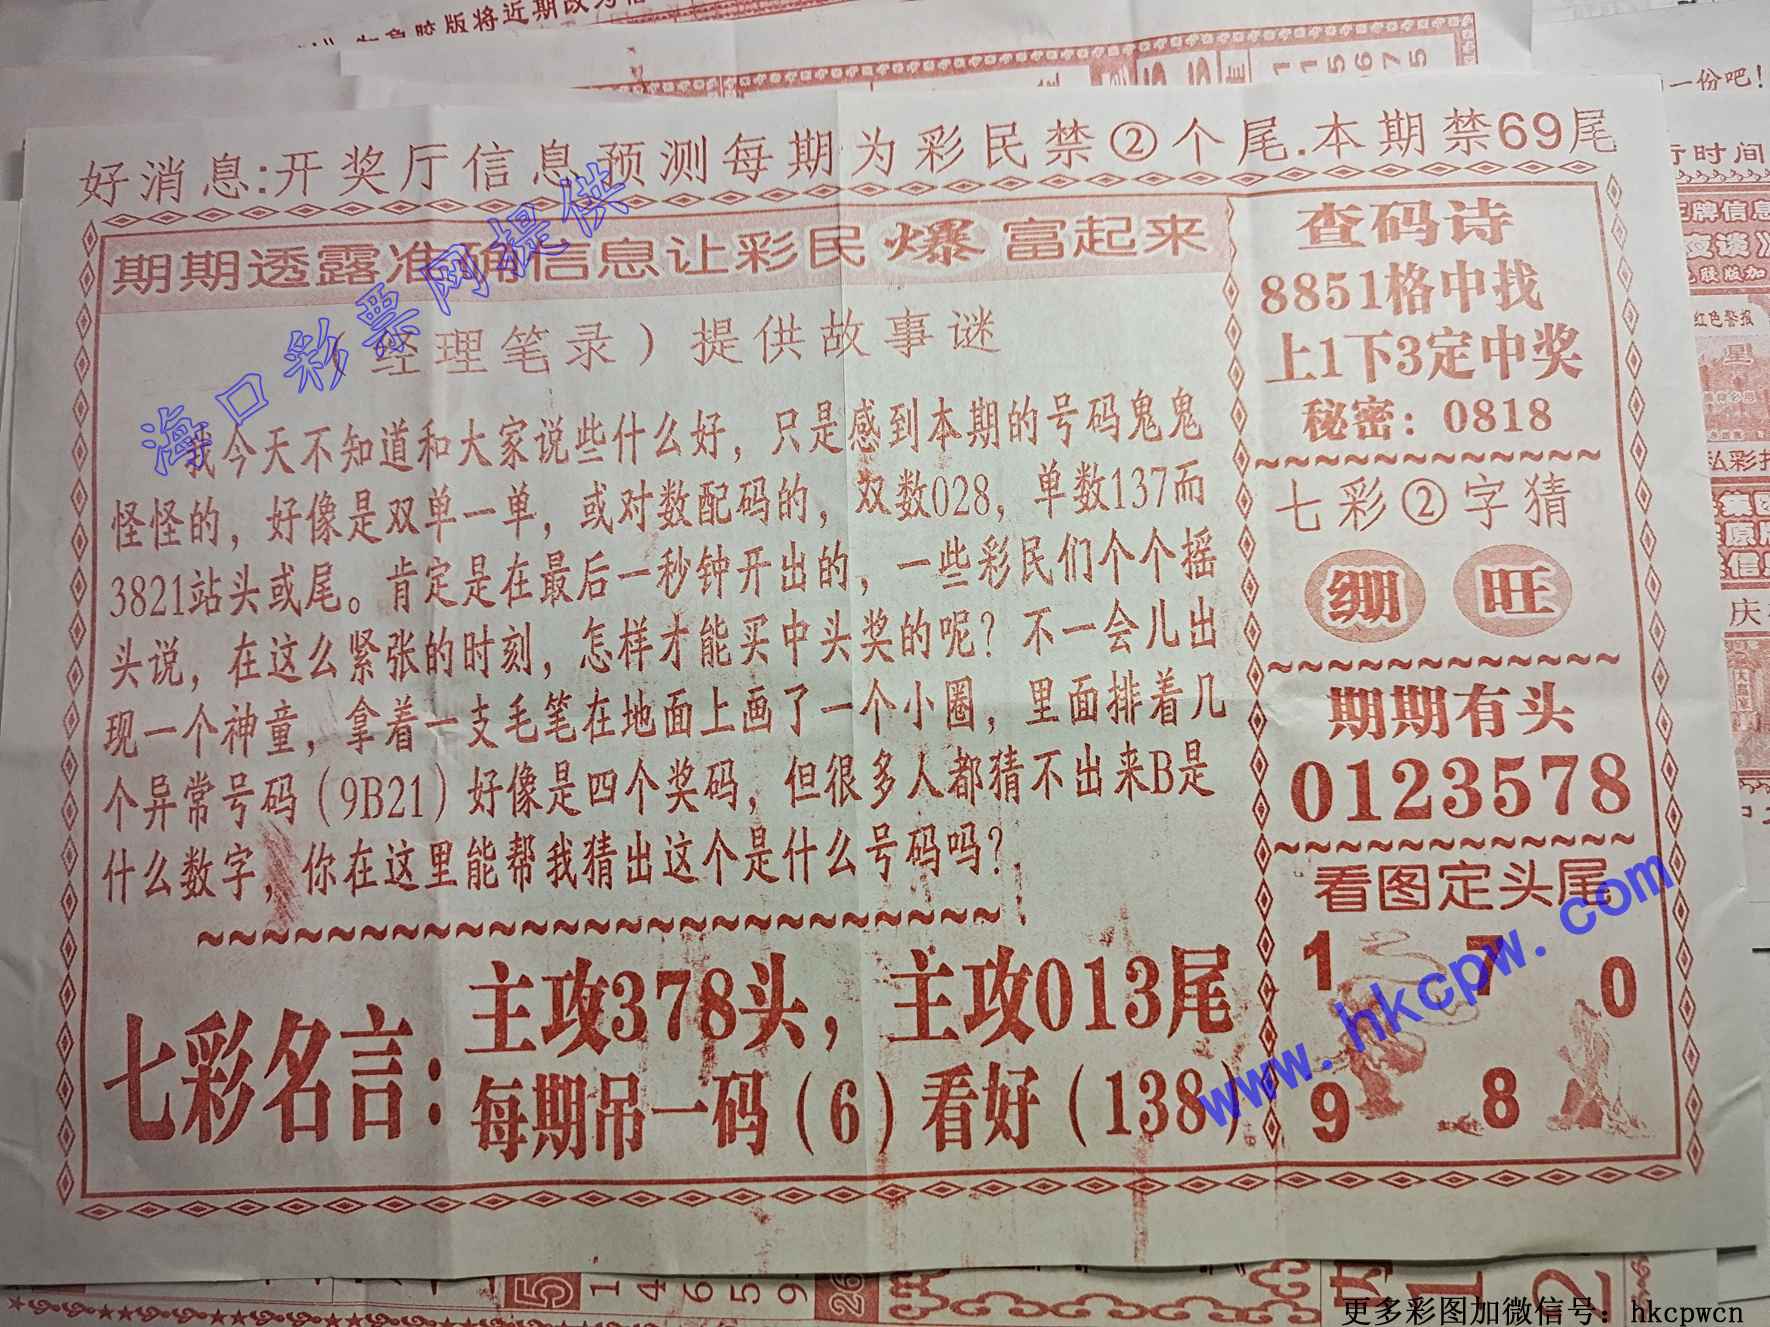 好消息:开奖厅信息预测每期为彩民禁②个尾.本期禁69尾
期期透露准确信息让彩民爆富起来
（经理笔录）提供故事谜
我今天不知道和大家说些什么好，只是感到本期的号码鬼鬼
怪怪的，好像是双单一单，或对数配码的，双数028，单数137而
3821站头或尾。肯定是在最后一秒钟开出的，一些彩民们个个摇
头说，在这么紧张的时刻，怎样才能买中头奖的呢？不一会儿出
现一个神童，拿着一支毛笔在地面上画了一个小圈，里面排着几
个异常号码（9B21）好像是四个奖码，但很多人都猜不出来B是
什么数字，你在这里能帮我猜出这个是什么号码吗？
七彩名言：
主攻378头，主攻013尾
每期吊一码（6）看好（138）
查码诗
8851格中找
上1下3定中奖
秘密：0818
七彩②字猜
绷 旺
期期有头
0123578
看图定头尾
1 7 0
9 8
海口彩票网提供
www.hkcpw.com
一份吧！
行时间
红色警报
星
5
1 4 6 5 9
26
更多彩图加微信号：hkcpwcn